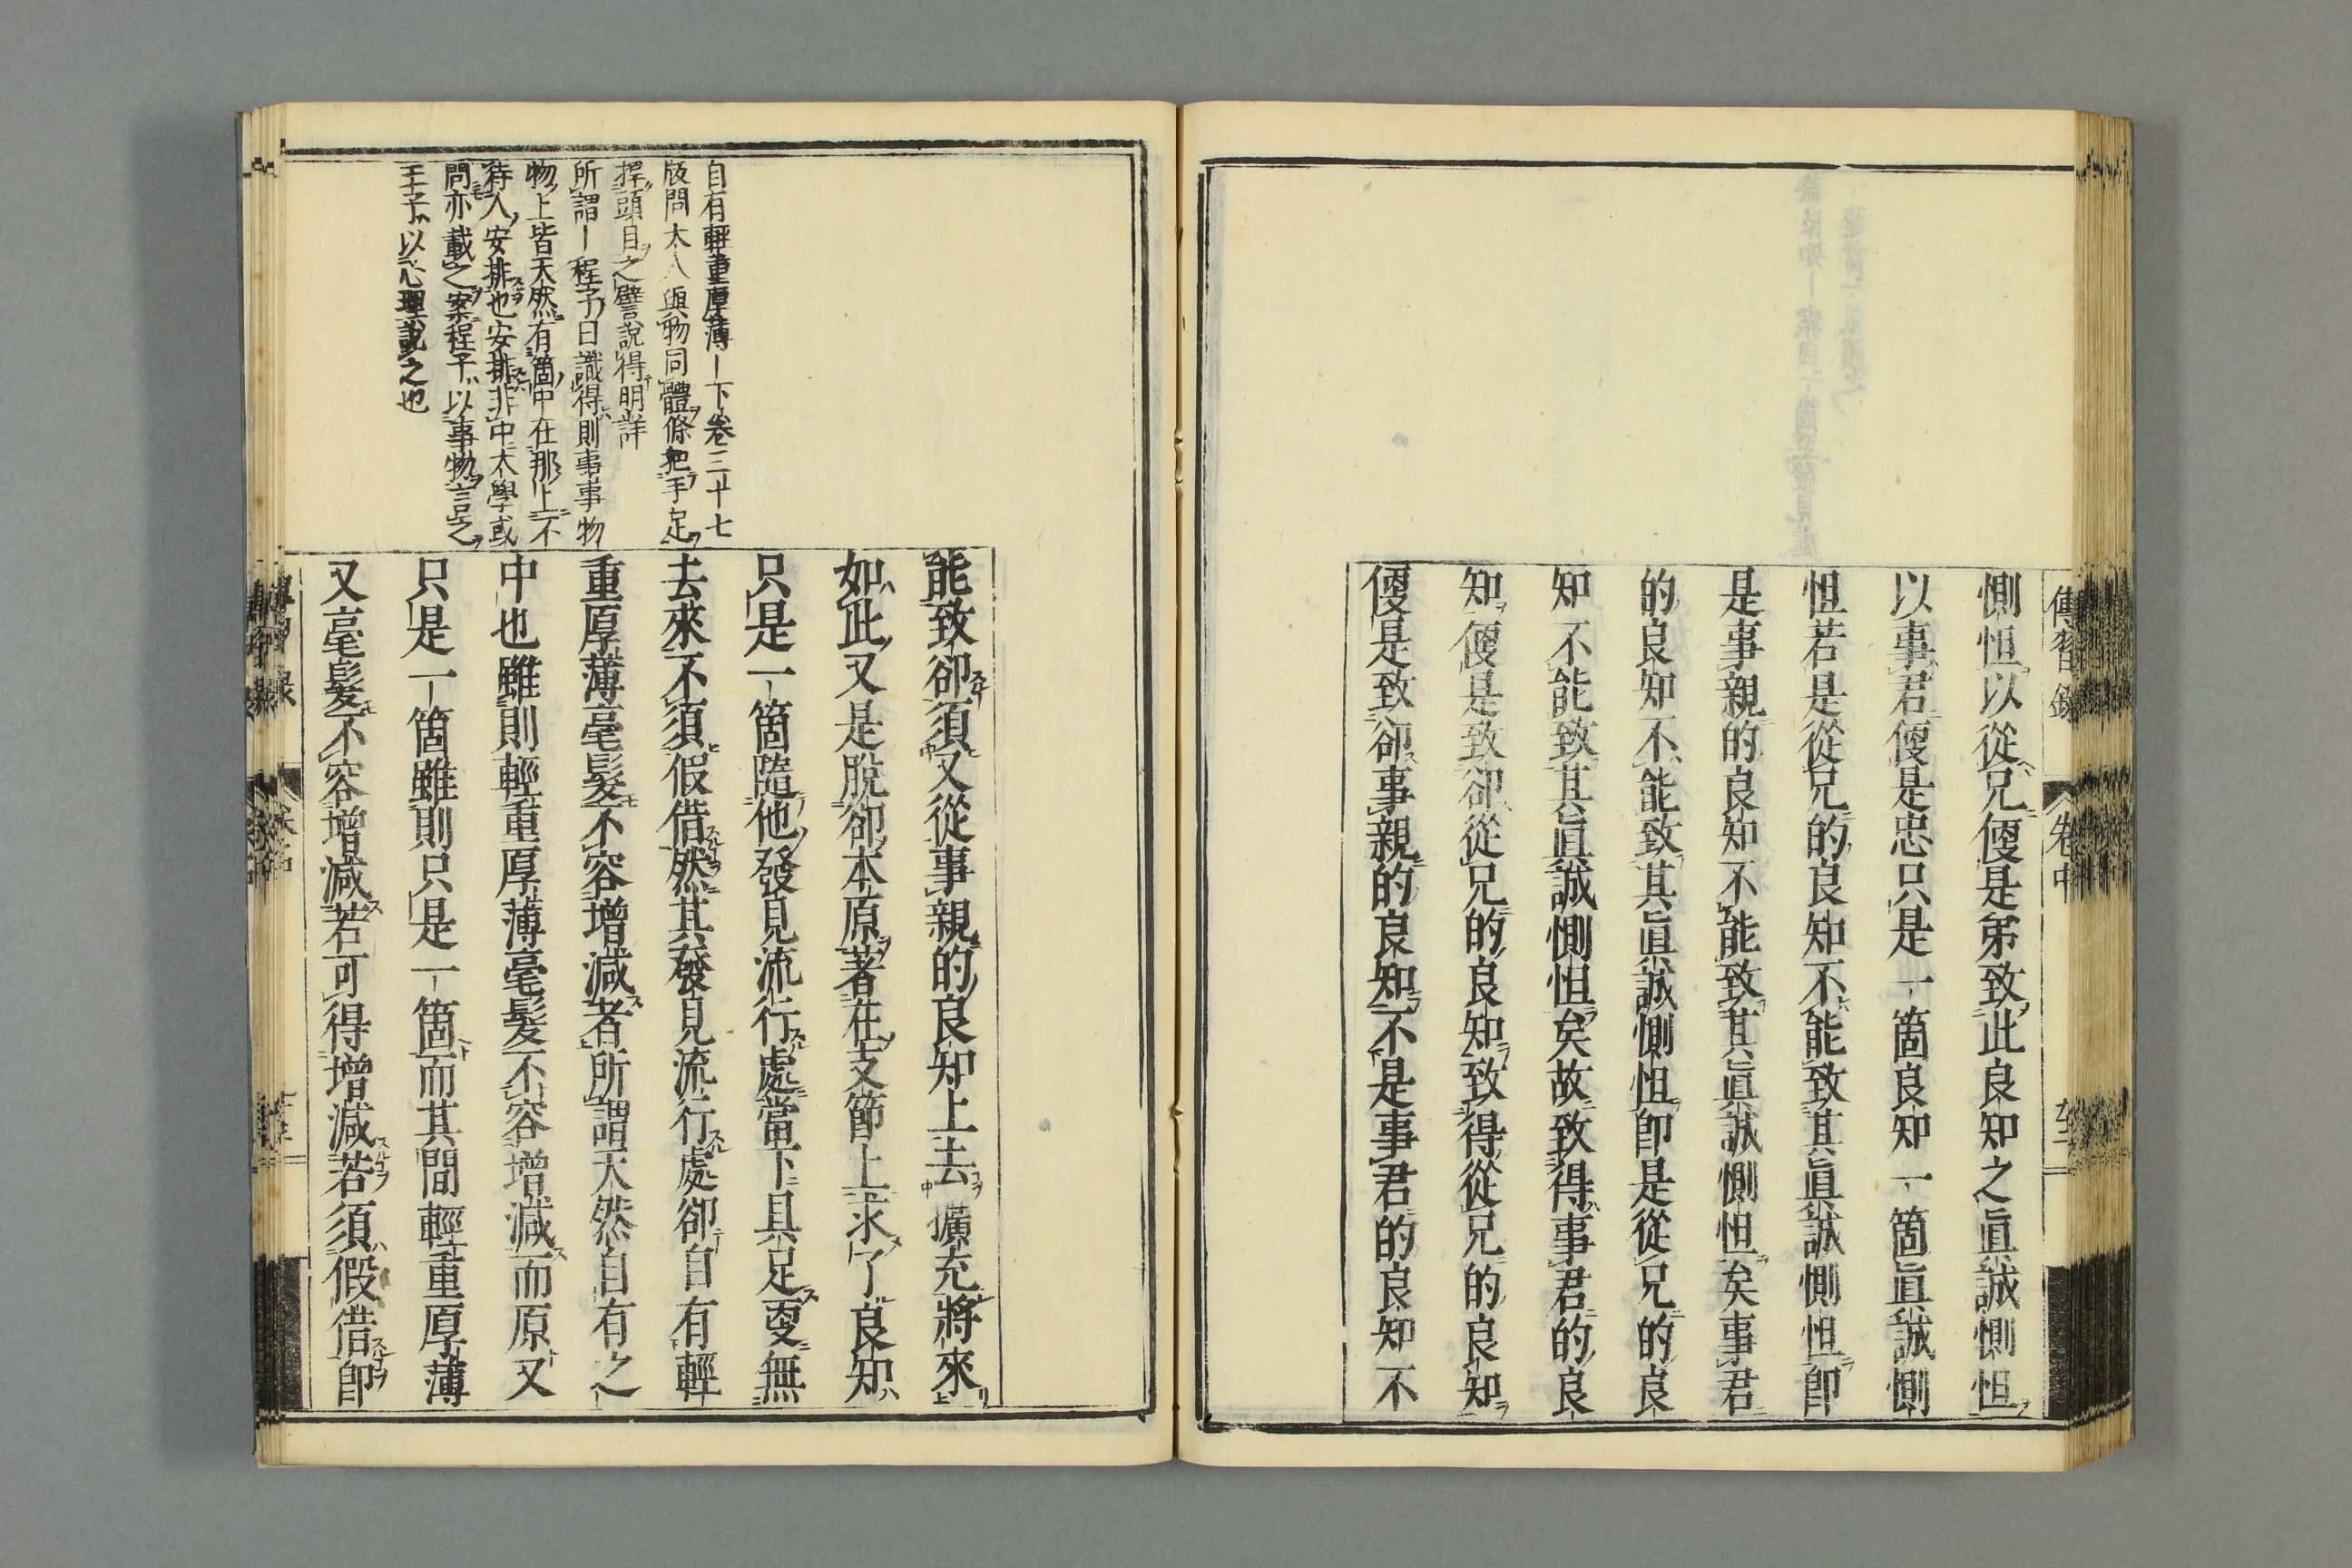 傳習錄
卷中
惻怛以從兄便是弟致此良知之眞誠惻怛
以事君便是忠只是一箇良知一箇眞誠惻
怛若是從兄的良知不能致其眞誠惻怛卽
是事親的良知不能致其眞誠惻怛矣事君
的良知不能致其眞誠惻怛卽是從兄的良
知不能致其眞誠惻怛矣故致得事君的良
知便是致卻從兄的良知致得從兄的良知
便是致卻事親的良知不是事君的良知不
自有輕重厚薄ー下卷三十七
版問大人與物同體條把手足
捍頭目之譬說得明詳
所謂ー程子曰識得則事事物
物上皆天然有箇中在那上不
待人安排也安排非中大學或
問亦載之案程子以事物言之
王子以心理說之也
能致卻須又從事親的良知上去擴充將來
如此又是脫卻本原著在支節上求了良知
只是一箇隨他發見流行處當下具足更無
去來不須假借然其發見流行處卻自有輕
重厚薄毫髮不容增減者所謂天然自有之
中也雖則輕重厚薄毫髮不容增減而原又
只是一箇雖則只是一箇而其間輕重厚薄
又毫髮不容增減若可得增減若須假借卽